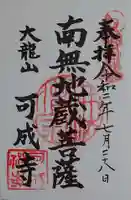 奉拝 令和二年七月二十八日
南無地蔵菩薩
大龍山
可成寺